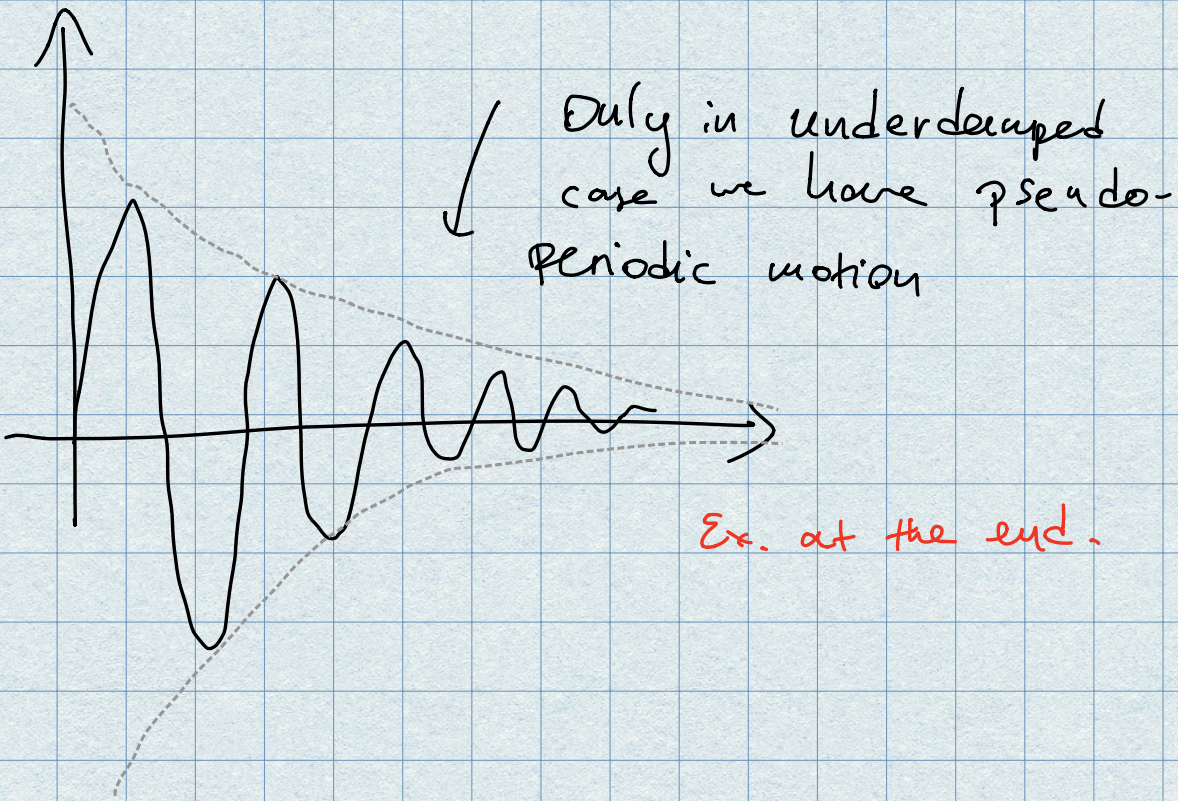 Only in underdamped
case we have pseudo-
periodic motion
Ex. at the end.